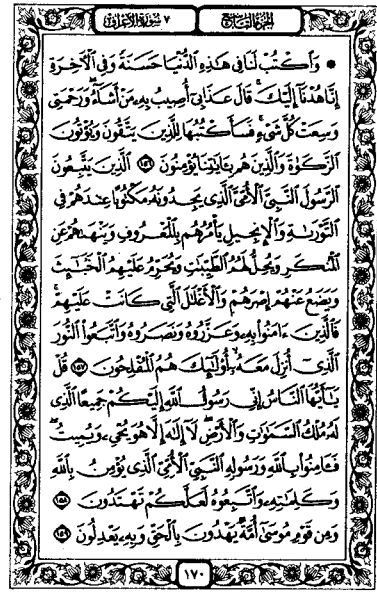 الجزء التاسع
٧ سورة الأعراف
۞ وَٱكْتُبْ لَنَا فِى هَٰذِهِ ٱلدُّنْيَا حَسَنَةً وَفِى ٱلْأَخِرَةِ
إِنَّا هُدْنَآ إِلَيْكَ ۚ قَالَ عَذَابِىٓ أُصِيبُ بِهِۦ مَنْ أَشَآءُ ۖ وَرَحْمَتِى
وَسِعَتْ كُلَّ شَىْءٍ ۚ فَسَأَكْتُبُهَا لِلَّذِينَ يَتَّقُونَ وَيُؤْتُونَ
ٱلزَّكَوٰةَ وَٱلَّذِينَ هُم بِـَٔايَٰتِنَا يُؤْمِنُونَ ١٥٦ ٱلَّذِينَ يَتَّبِعُونَ
ٱلرَّسُولَ ٱلنَّبِىَّ ٱلْأُمِّىَّ ٱلَّذِى يَجِدُونَهُۥ مَكْتُوبًا عِندَهُمْ فِى
ٱلتَّوْرَىٰةِ وَٱلْإِنجِيلِ يَأْمُرُهُم بِٱلْمَعْرُوفِ وَيَنْهَىٰهُمْ عَنِ
ٱلْمُنكَرِ وَيُحِلُّ لَهُمُ ٱلطَّيِّبَٰتِ وَيُحَرِّمُ عَلَيْهِمُ ٱلْخَبَٰٓئِثَ
وَيَضَعُ عَنْهُمْ إِصْرَهُمْ وَٱلْأَغْلَٰلَ ٱلَّتِى كَانَتْ عَلَيْهِمْ ۚ
فَٱلَّذِينَ ءَامَنُوا۟ بِهِۦ وَعَزَّرُوهُ وَنَصَرُوهُ وَٱتَّبَعُوا۟ ٱلنُّورَ
ٱلَّذِىٓ أُنزِلَ مَعَهُۥٓ ۙ أُو۟لَٰٓئِكَ هُمُ ٱلْمُفْلِحُونَ ١٥٧ قُلْ
يَٰٓأَيُّهَا ٱلنَّاسُ إِنِّى رَسُولُ ٱللَّهِ إِلَيْكُمْ جَمِيعًا ٱلَّذِى
لَهُۥ مُلْكُ ٱلسَّمَٰوَٰتِ وَٱلْأَرْضِ ۖ لَآ إِلَٰهَ إِلَّا هُوَ يُحْىِۦ وَيُمِيتُ ۖ
فَـَٔامِنُوا۟ بِٱللَّهِ وَرَسُولِهِ ٱلنَّبِىِّ ٱلْأُمِّىِّ ٱلَّذِى يُؤْمِنُ بِٱللَّهِ
وَكَلِمَٰتِهِۦ وَٱتَّبِعُوهُ لَعَلَّكُمْ تَهْتَدُونَ ١٥٨
وَمِن قَوْمِ مُوسَىٰٓ أُمَّةٌ يَهْدُونَ بِٱلْحَقِّ وَبِهِۦ يَعْدِلُونَ ١٥٩
١٧٠